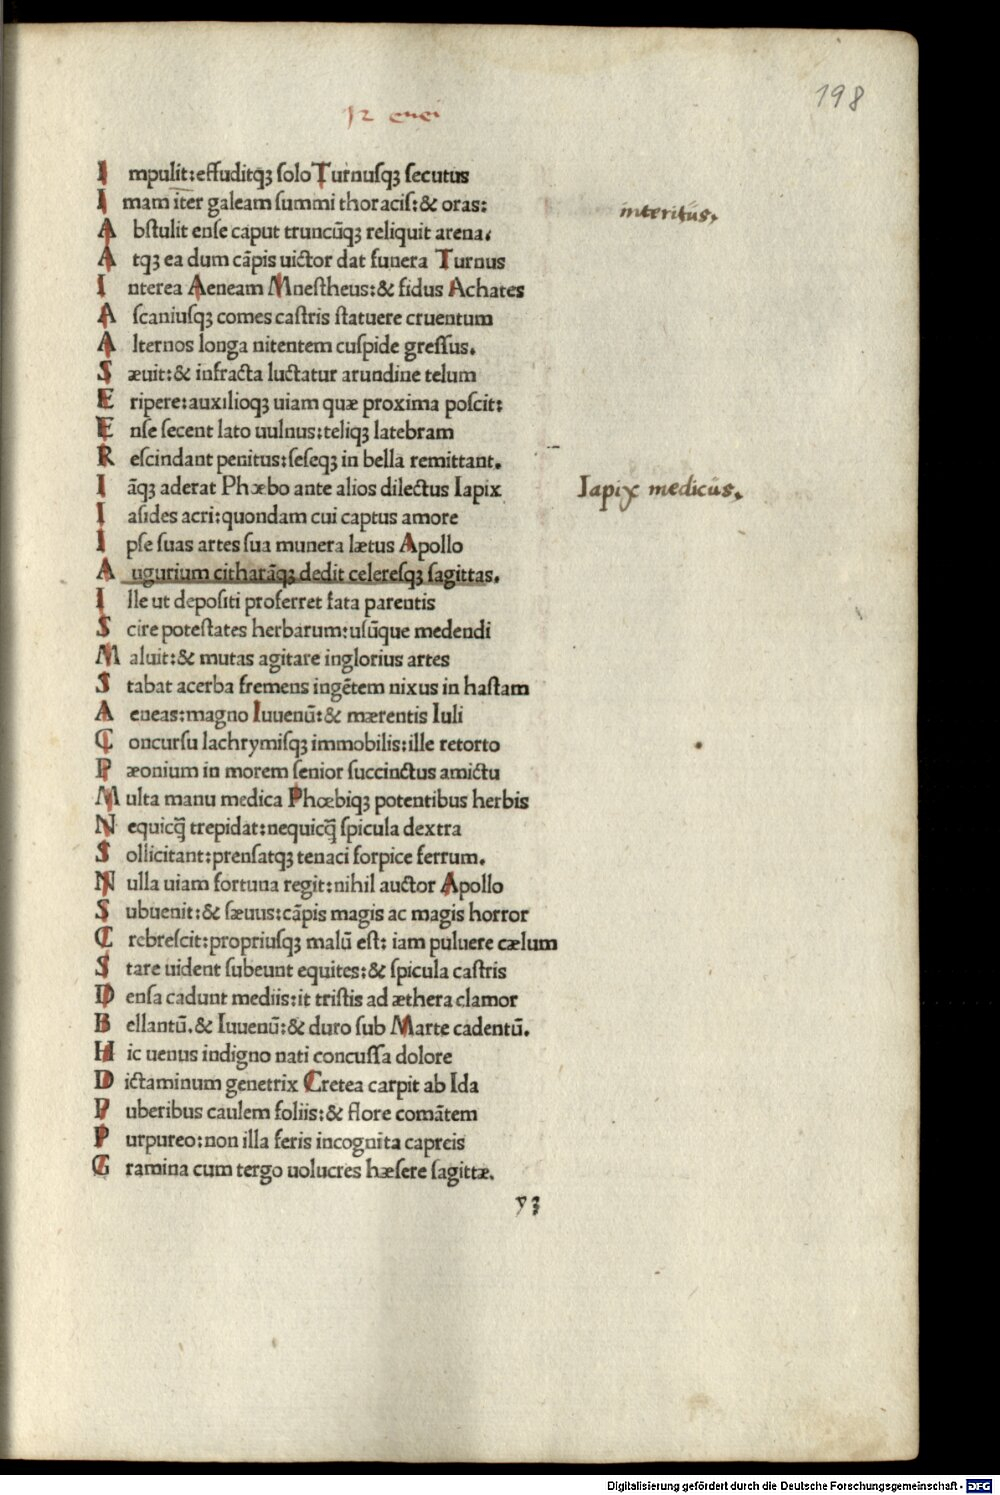 198
12 enei
I mpulit:effuditqꝫ solo Turnusqꝫ secutus
I mam iter galeam summi thoracis:& oras:
interitus,
A bstulit ense caput truncūqꝫ reliquit arena.
A tqꝫ ea dum cāpis uictor dat funera Turnus
I nterea Aeneam Mnestheus:& fidus Achates
A scaniusqꝫ comes castris statuere cruentum
A lternos longa nitentem cuspide gressus.
S æuit:& infracta luctatur arundine telum
E ripere:auxilioqꝫ uiam quæ proxima poscit:
E nse secent lato uulnus:teliqꝫ latebram
R escindant penitus:seseqꝫ in bella remittant.
I āqꝫ aderat Phœbo ante alios dilectus Iapix
Iapix medicus,
I asides acri:quondam cui captus amore
I pse suas artes sua munera lætus Apollo
A ugurium citharāqꝫ dedit celeresqꝫ sagittas.
I lle ut depositi proferret fata parentis
S cire potestates herbarum:usūque medendi
M aluit:& mutas agitare inglorius artes
S tabat acerba fremens ingētem nixus in hastam
A eneas:magno Iuuenū:& mærentis Iuli
C oncursu lachrymisqꝫ immobilis:ille retorto
P æonium in morem senior succinctus amictu
M ulta manu medica Phœbiqꝫ potentibus herbis
N equicq̄ trepidat:nequicq̄ spicula dextra
S ollicitant:prensatqꝫ tenaci forpice ferrum.
N ulla uiam fortuna regit:nihil auctor Apollo
S ubuenit:& sæuus:cāpis magis ac magis horror
C rebrescit:propriusqꝫ malū est: iam puluere cælum
S tare uident subeunt equites:& spicula castris
D ensa cadunt mediis:it tristis ad æthera clamor
B ellantū.& Iuuenū:& duro sub Marte cadentū.
H ic uenus indigno nati concussa dolore
D ictaminum genetrix Cretea carpit ab Ida
P uberibus caulem foliis:& flore comātem
P urpureo:non illa feris incognita capreis
G ramina cum tergo uolucres hæsere sagittæ.
y3
Digitalisierung gefördert durch die Deutsche Forschungsgemeinschaft - DFG